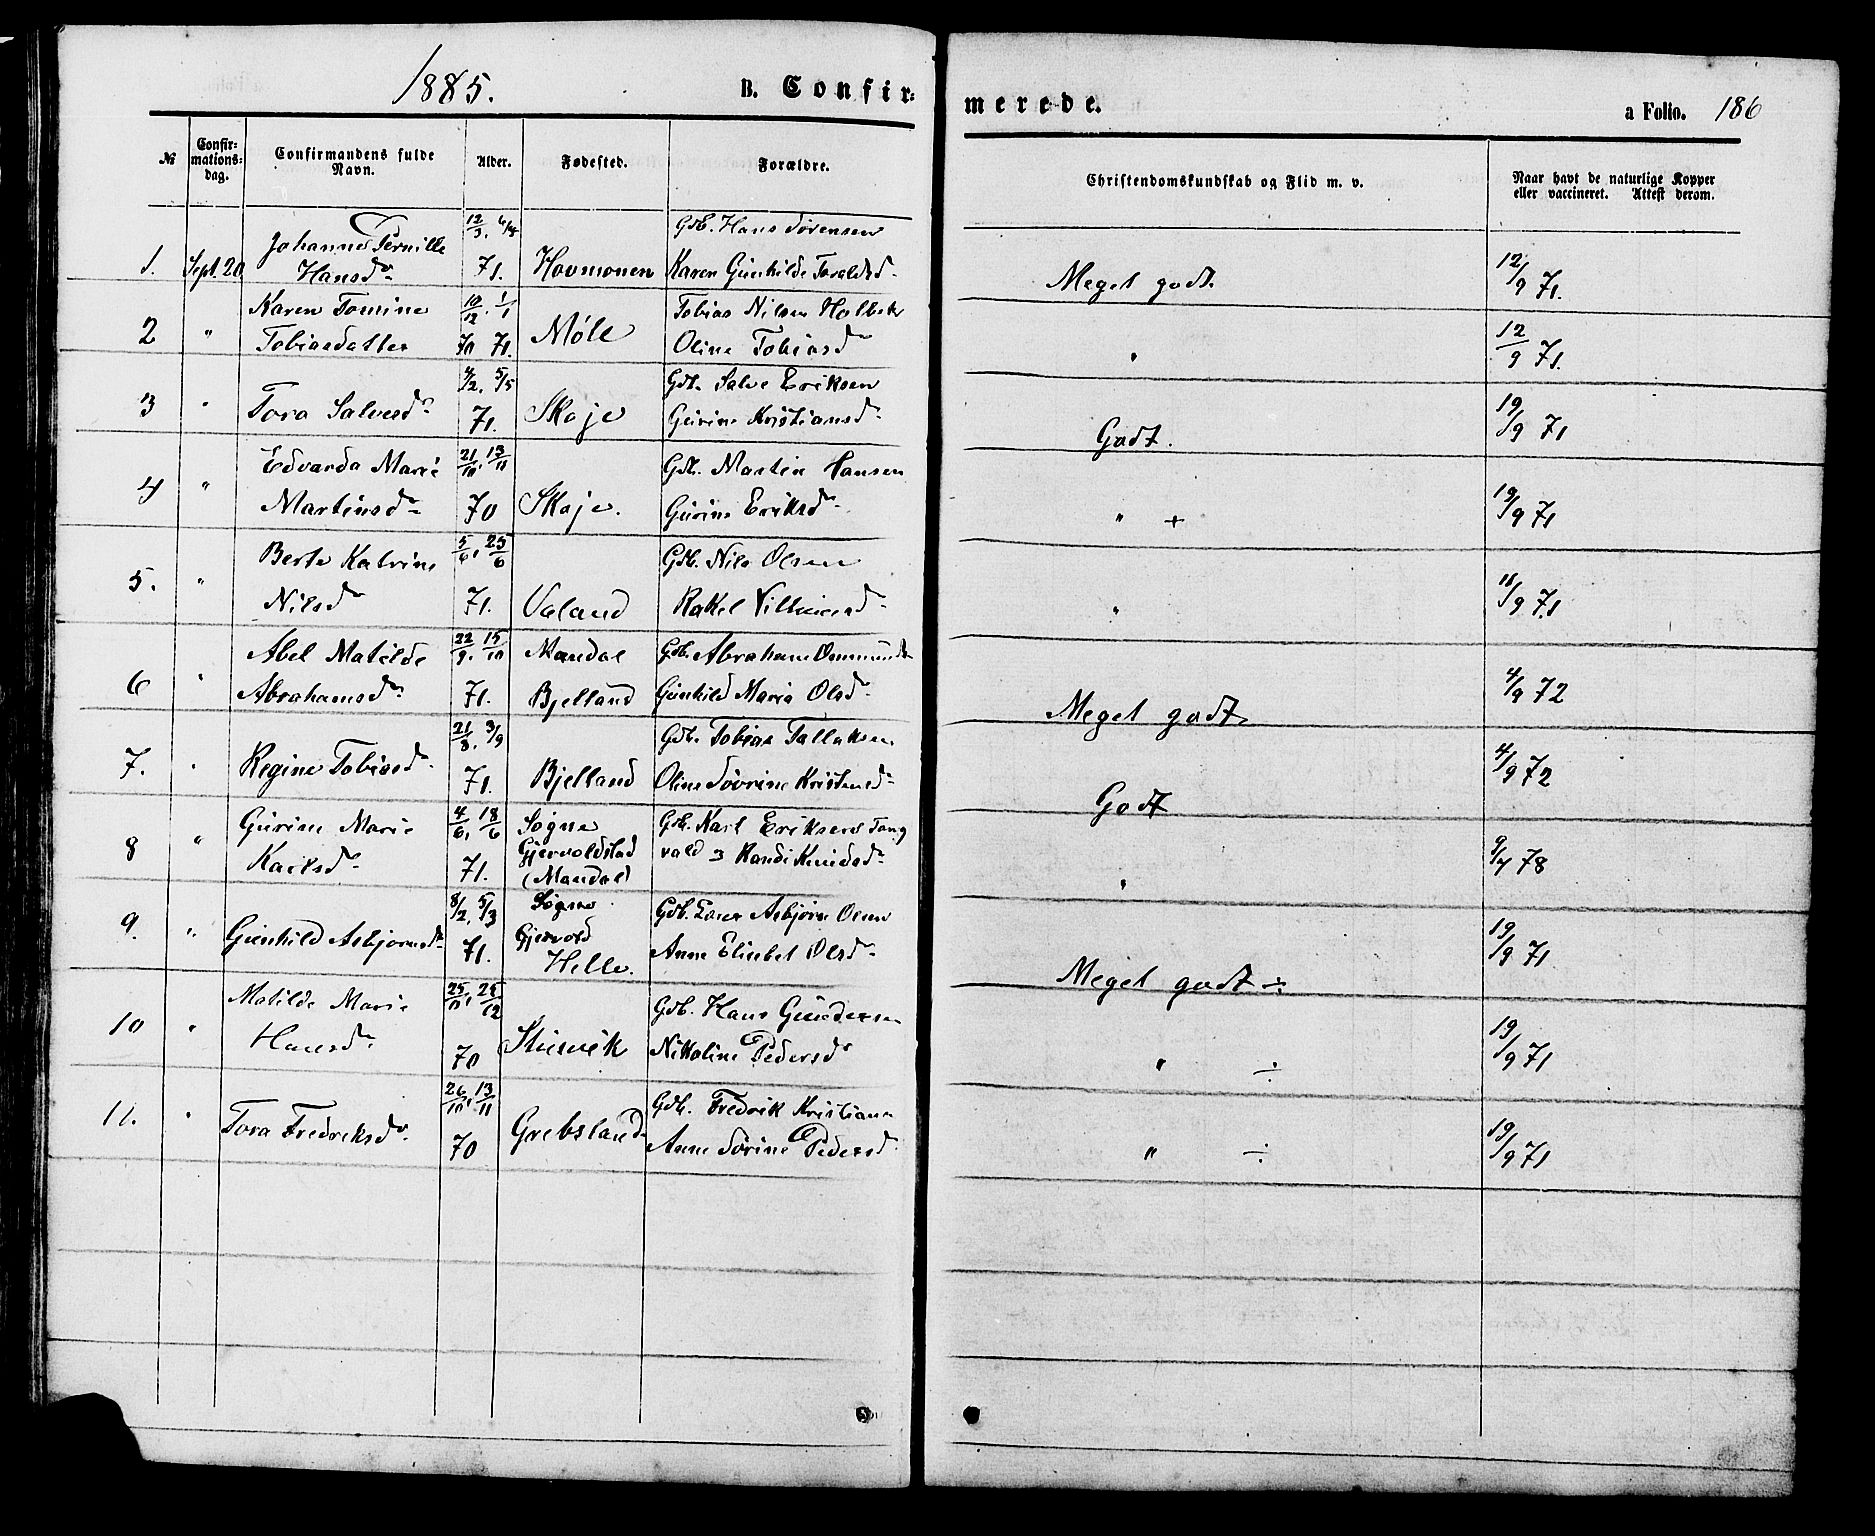 1885. B. Confir: merede. a Folio. 186
№ Confir: mations: dag. Confirmandens fulde Navn. Alder. Fødested. Forældre. Christendomskundskab og Flid m. v. Naar havt de naturlige Kopper eller vaccineret. Attest derom.
12/3. Gdb. Hans Sørensen
1. Sept. 20 Johanne Pernille Hansdr 71. Hovmonen Karen Gunhilde Toraldsd. Meget godt. 12/9 71.
Karen Tomine 10/12. 1/1 Tobias Nilsen Holbek
2 " Tobiasdatter 70 71. Møll Oline Tobiasdr " 12/9 71.
4/2. 5/5 Gdb. Salve Eriksen
3 " Tora Salvesdr 71. Skoje Gurine Kristiansd. Godt. 19/9 71
Edvarda Marie 21/10. 13/11 Gdb. Martin Hansen
4 " Martinsdr 70 Skoje. Gurine Eriksdr " + 19/9 71
Berte Katrine 5/6. 25/6 Gdb. Nils Olsen
5. " Nilsdr 71. Valand Rakel " 71
Abel Matilde 22/9. 15/10 Mandal Gdb. Abraham
6 " Abrahamsdr 71. Bjelland Gunhild Maria Olsd. Meget godt 4/9 72
21/8. 3/9 Gdb. Tobias Tallaksen
7. " Regine Tobiasd. 71. Bjelland Oline Sørine Kristensd. Godt 4/9 72
Gurine Marie 4/6. 18/6 Søgne Gdb. Karl Eriksen Tang
8 " Karlsdr 71. Gjervoldstad vald Randi Knudsdr " 9/4 78
(Mandal)
8/2. 5/3 Søgne Gdb. Asbjørn Olsen
9. " Gunhild Asbjørnsdr 71. Gjervold Anne Elisebet Olsdr 19/9 71
Helle. Meget godt ÷
Matilde Marie 25/10. Gdb. Hans Gundersen
10 " Hansdr 70 Stusvik Nikoline Pedersdr " ÷ 19/9 71
26/10. 13/11 Gdb. Fredrik Kristians
11. " Tora Fredriksdr. 70 Grebsland Anne Sørine Pedersd. " ÷ 19/9 71